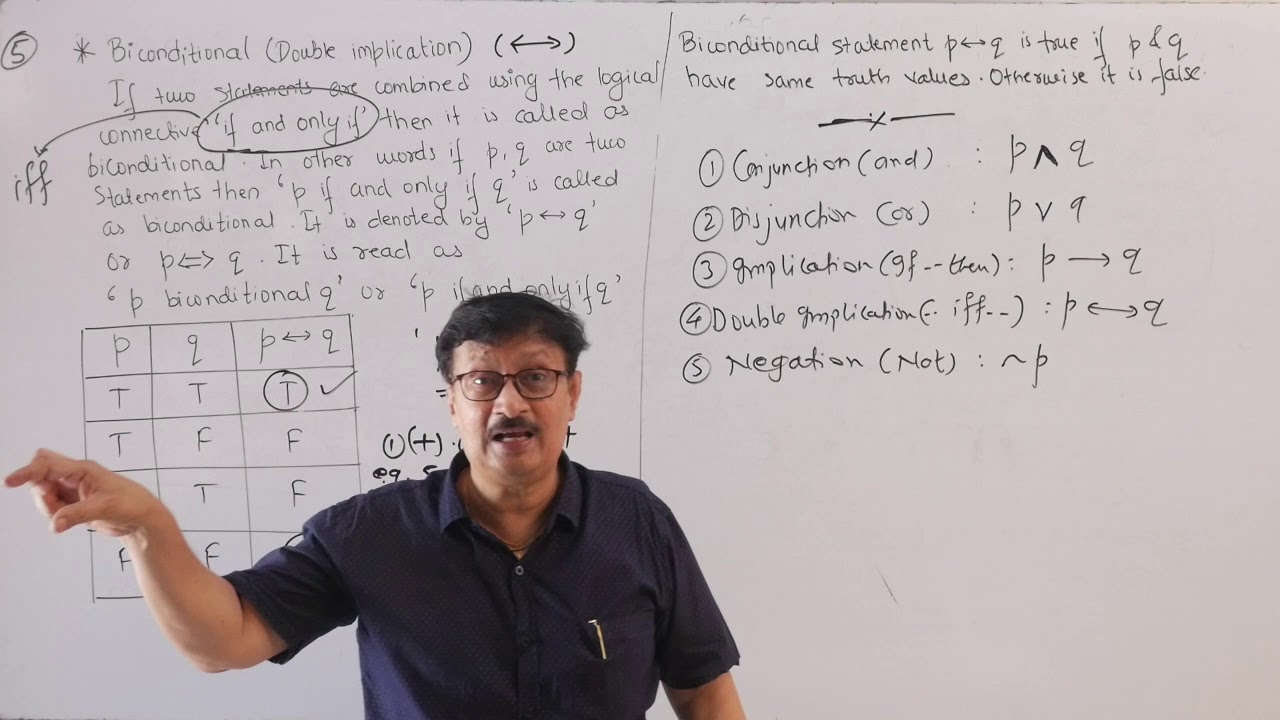 ⑤ * Biconditional (Double implication) (↔)
If two statements are combined using the logical
connective 'if and only if' then it is called as
iff
biconditional. In other words if p, q are two
statements then 'p if and only if q' is called
as biconditional. It is denoted by 'p ↔ q'
or p ⇔ q. It is read as
'p biconditional q' or 'p if and only if q'
p q p ↔ q
T T T ✓
T F F
T F
F F
①(+)
e.g.
Biconditional statement p ↔ q is true if p & q
have same truth values. Otherwise it is false.
① Conjunction (and) : p ∧ q
② Disjunction (or) : p ∨ q
③ Implication (If -- then) : p → q
④ Double Implication (-- iff --) : p ↔ q
⑤ Negation (Not) : ~p